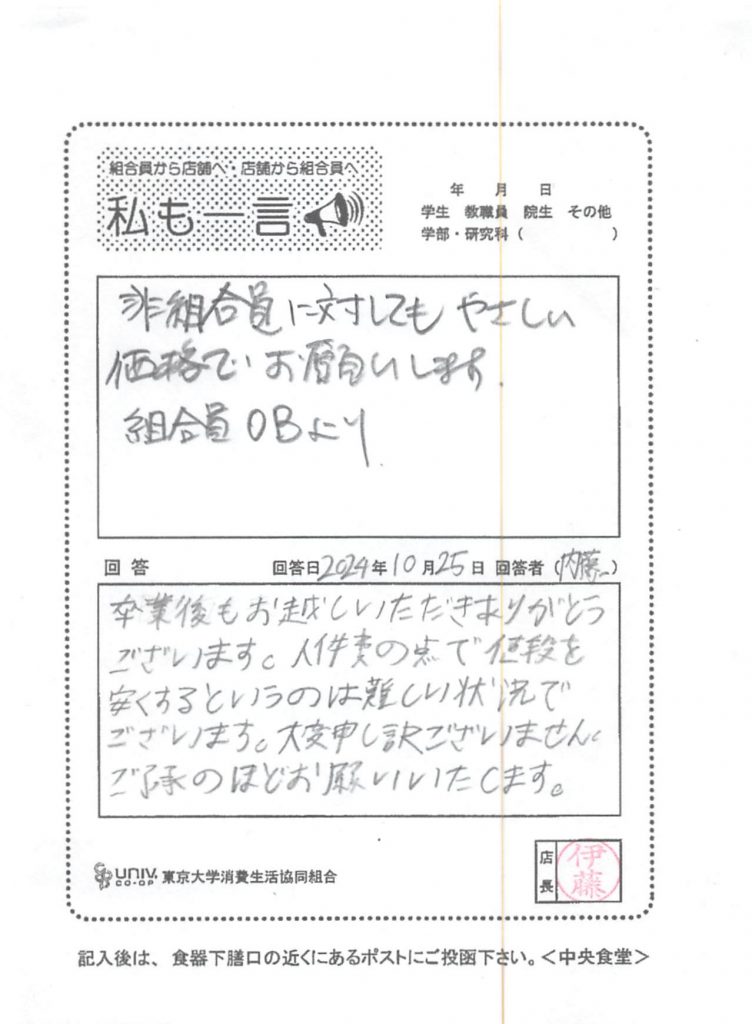 組合員から店舗へ・店舗から組合員へ
私も一言
年 月 日
学生 教職員 院生 その他
学部・研究科( )
非組合員に対しても やさしい
価格で お願いします.
組合員OBより
回答 回答日2024年10月25日 回答者(内藤)
卒業後もお越しいただきありがとう
ございます。人件費の点で値段を
安くするというのは難しい状況で
ございます。大変申し訳ございません。
ご了承のほどお願いいたします。
UNIV. CO-OP 東京大学消費生活協同組合
店長 伊藤
記入後は、食器下膳口の近くにあるポストにご投函下さい。<中央食堂>